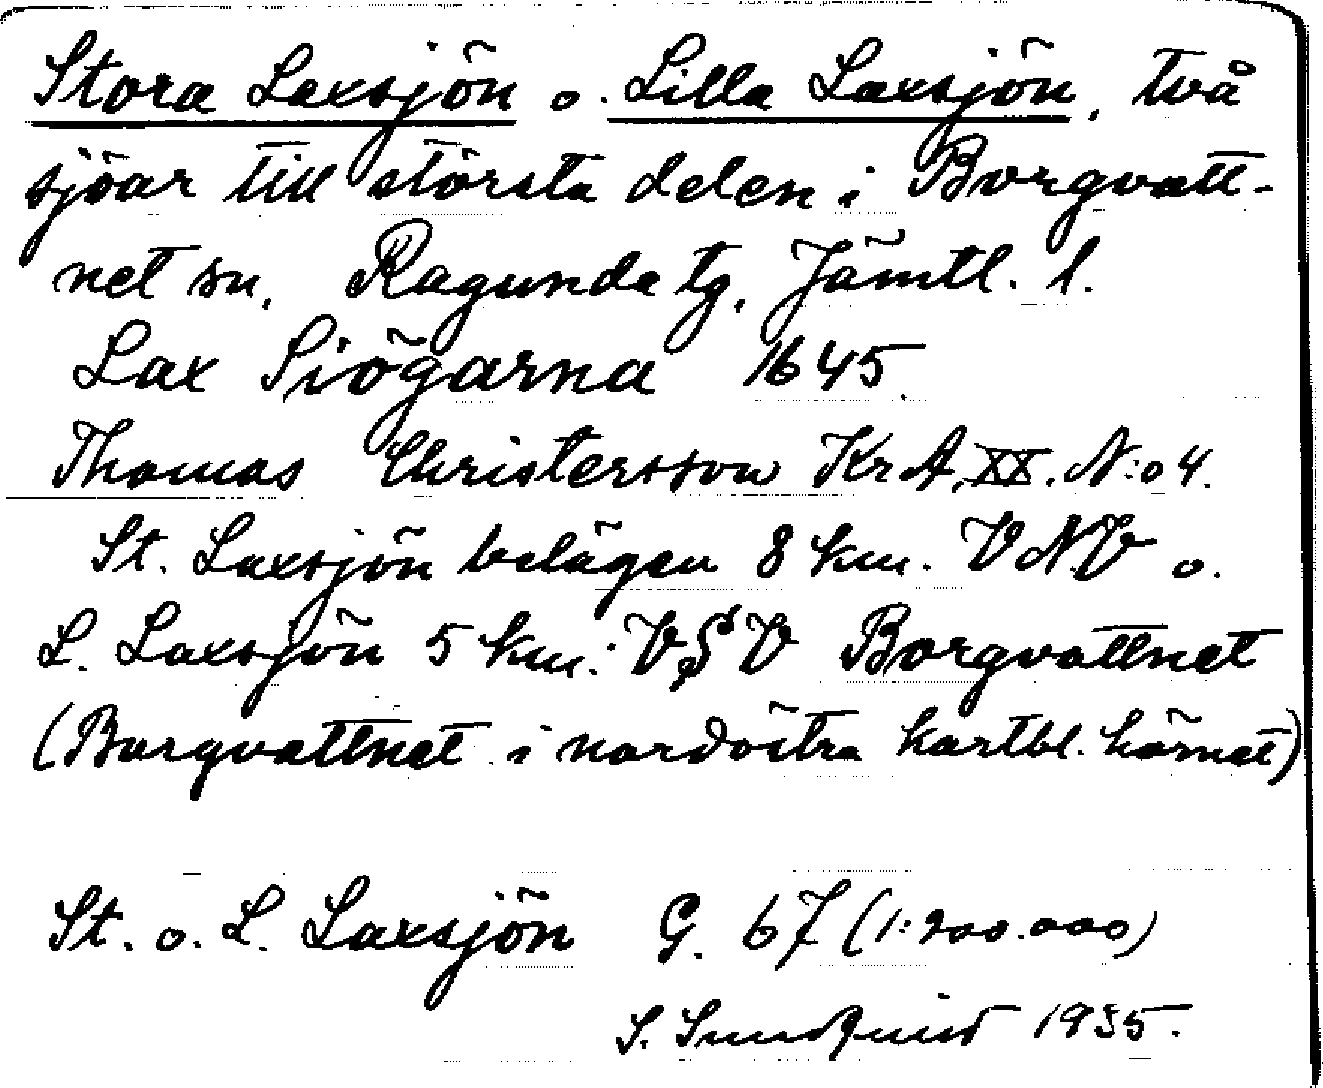 Stora Laxsjön o. Lilla Laxsjön, två
sjöar till största delen i Borgvatt-
net sn, Ragunda tg, Jämtl. l.
Lax Siögarna 1645
Thomas Christersson KrA, XX. N:o 4.
St. Laxsjön belägen 8 km. VNV o.
L. Laxsjön 5 km. VSV Borgvattnet
(Borgvattnet i nordöstra kartbl. hörnet)
St. o. L. Laxsjön G. 67 (1:200.000)
S. Sundquist 1935.